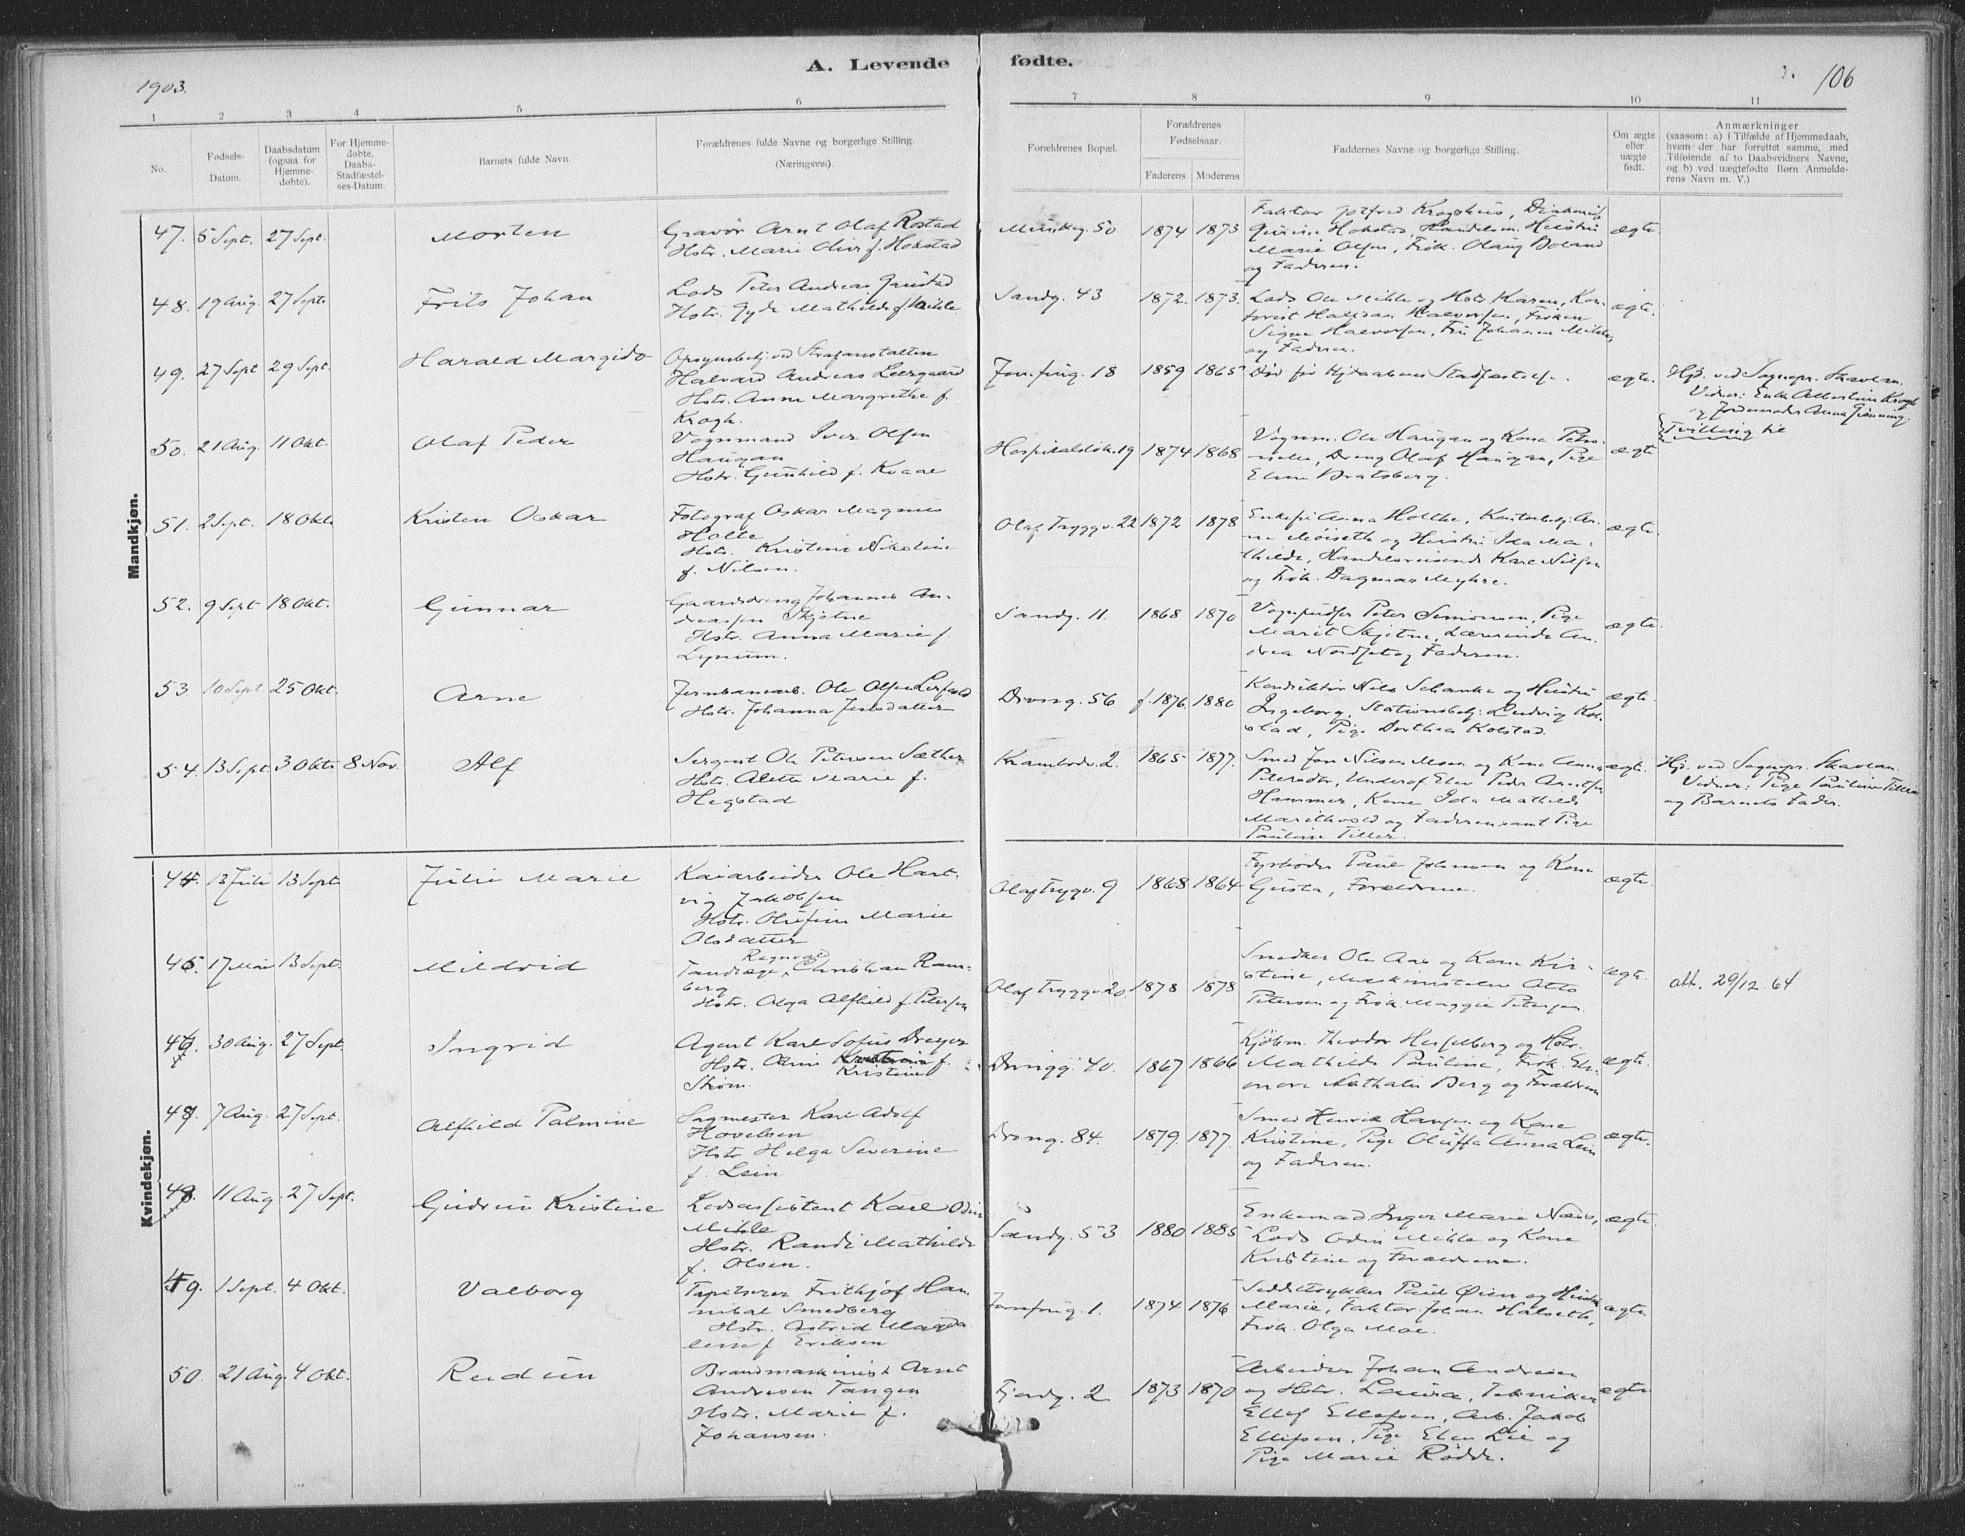 1903.
A. Levende fødte.
106
1 2 3 4 5 6 7 8 9 10 11
No.
Fødsels-
Datum.
Daabsdatum
(ogsaa for
Hjemme-
døbte).
For Hjemme-
døbte,
Daabs-
Stadfæstel-
ses-Datum.
Barnets fulde Navn.
Forældrenes fulde Navne og borgerlige Stilling.
(Næringsvei).
Forældrenes Bopæl.
Forældrenes
Fødselsaar.
Faderens Moderens
Faddernes Navne og borgerlige Stilling.
Om ægte
eller
uægte
født.
Anmærkninger
(saasom: a) i Tilfælde af Hjemmedaab,
hvem der har forrettet samme, med
Tilføiende af to Daabsvidners Navne,
og b) ved uægtefødte Børn Anmelde-
rens Navn m. V.)
Mandkjøn.
47. 5 Sept. 27 Sept. Morten
Gravør Arnt Olaf Rostad
Hstr. Marie f. Hokstad
50 1874 1873
Faktor Kroghus,
Hokstad,
Marie Olsen, Frøk. Olaug
og Faderen.
ægte
48. 19 Aug. 27 Sept. Frits Johan
Lods Peter Andreas
Hstr. Gyda Mathilde f. Mikle
Sandg. 43 1872. 1873.
Lods Ole Mikle og Hstr. Karen, Kon-
torist Halfdan Halvorsen, Frøken
Signe Halvorsen, Fru Johanna Mikle,
og Faderen.
ægte.
49. 27 Sept 29 Sept. Harald Margido
Opsynsbetj. ved Strafanstalten
Halvard Andreas Leergaard
Hstr. Anna Margrethe f.
Krogh.
Jomfrug. 18 1859 1865
Død før Hjdaabens Stadfæstelse.
ægte.
Hjd. ved Sognepr. Skavlan.
Vidner: Enk. Albertine Krogh
og Jordemoder Anna Grønning.
Tvilling til
50. 21 Aug. 11 Okt. Olaf Peder
Vognmand Iver Olsen
Haugan
Hstr. Gunhild f. Kvaal
19 1874 1868
Vognm. Ole Haugan og Kone Petro-
nelle, Dreng Olaf Haugan, Pige
Eline Bratsberg.
ægte
51. 2 Sept. 18 Okt. Kristen Oskar
Fotograf Oskar Magnus
Holte
Hstr. Kristine Nikoline
f. Nilsen.
Olaf Tryggv. 22 1872 1878
Enkefru Anna Holthe, Kontorbetj. Ar-
ne Moiseth og Hustru Ida Ma-
thilde, Handelsreisende Kare Nilsen
og Frøk. Dagmar Myhre.
ægte.
52. 9 Sept 18 Okt. Gunnar
Gaardsdreng Johannes An-
dreassen Skjetne
Hstr. Anna Marie f.
Lynum.
Sandg. 11. 1868 1870
Peter Simonsen, Pige
Marit Skjetne, Lærerinde An-
drea og Faderen.
ægte.
53. 10 Sept 25 Okt. Arne
Jernbanearb. Ole Olsen Lerfald
Hstr. Johanna Jensdatter
Drong. 56 f. 1876. 1880
Konduktør Nils Schanke og Hustru
Ingeborg, Stationsbetj. Ludvig Kol-
stad, Pige Dorthea Kolstad.
ægte.
54. 13 Sept. 3 Okt. 8 Nov. Alf
Sergent Ole Petersen Sæther
Hstr. Alette Marie f.
Hegstad
Krambodv. 2. 1865 1877.
Smed Jon Nilsen Moen og Kone Anna
Petersdtr., Underof. Elev Peder Arntsen
Hammer, Kone Ida Mathilde
og Faderen samt Pige
Pauline Tiller.
ægte.
Hjd. ved Sognepr. Skavlan.
Vidner: Pige Pauline Tiller
og Barnets Fader.
Kvindekjøn.
44. 13 Juli 13 Sept. Julie Marie
Kaiarbeider Ole Hart-
vig Jakobsen
Hstr. Olufine Marie
Olsdatter
Olaf Trygv. 9 1868 1864
Fyrbøder Paul Johnsen og Kone
Gusta, Forældrene.
ægte.
45. 17 Mai 13 Sept. Mildrid
Ragnvald
Tandlæge Christian Ram-
berg
Hstr. Olga Alfhild f. Petersen
Olaf Tryggv. 20. 1878 1878
Snedker Ole Aas og Kone Kir-
stine, Maskinist Otto
Petersen og Frøk Maggie Petersen
ægte.
att. 29/12.64
46. 30 Aug. 27 Sept. Ingrid
Agent Karl Sofus Dreyer
Hstr. f.
Kristine
Strøm.
Dronngg. 40. 1867 1866
Kjøbm. Theodor Hesselberg og Hstr.
Mathilde Pauline, Frøk. Ele-
onore Nathalie Berg og Forældrene
ægte.
47. 7 Aug. 27 Sept. Alfhild Palmine
Sagmester Karl Adolf
Hovelsen
Hstr. Helga Severine
f. Lein
Drong. 84. 1879 1877.
Smed Henrik Hansen og Kone
Kristine, Pige Oluffa Anna Lein
og Faderen.
ægte.
48. 11 Aug. 27 Sept. Gudrun Kristine
Lodsassistent Karl Odin
Mikle
Hstr. Randi Mathilde
f. Olsen.
Sandg. 53 1880 1885
Enkemad. Inger Marie Næss,
Lods Odin Mikle og Kone
Kristine og Forældrene.
ægte.
49. 1 Sept. 4 Okt. Valborg
Tapetserer Frithjof Han-
nibal Smedberg
Hstr. Astrid Magda-
lene f. Eriksen
Jomfrug. 1. 1874 1876
Paul Øien og Hustru
Marie, Faktor Johan Halseth,
Frøk. Olga Moe.
ægte.
50. 21 Aug. 4 Okt. Reidun
Brandmaskinist Arnt
Andresen Tangen
Hstr. Marie f.
Johansen.
Fjordg. 2 1873 1870
Arbeider Johan Andresen
og Hstr. Laura, Tekniker
Ellef Ellefsen, Arb. Jakob
Ellefsen, Pige Elen Lie og
Pige Marie Rødde.
ægte